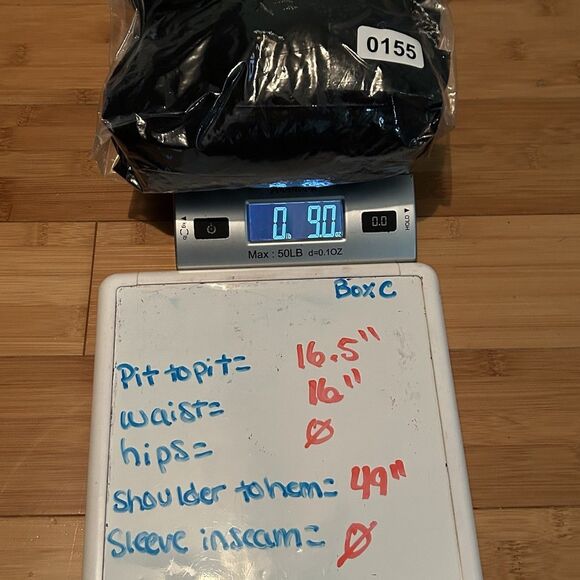 0155
0 lb 9.0 oz
0.0
HOLD
Max : 50LB d=0.1OZ
Box C
Pit to pit= 16.5"
waist= 16"
hips= Ø
Shoulder to hem= 49"
Sleeve inseam= Ø